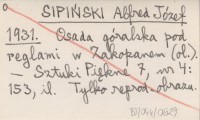 SIPIŃSKI Alfred Józef
1931. Osada góralska pod
reglami w Zakopanem (ol.).
— Sztuki Piękne 7, nr 4:
153, il. Tylko reprod. obrazu.